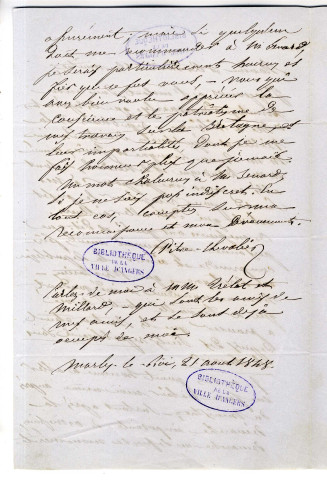 assurément, mais si quelqu'un
doit me recommander à M. Senard
je serai particulièrement heureux et
fier que ce soit vous — vous qui
avez bien voulu apprécier la
conscience et le patriotisme de
mes travaux sur la Bretagne, et
leur impartialité dont je me
fais honneur plus que jamais.
Un mot chaleureux à M. Senard,
si je ne suis pas indiscret. En
tout cas, comptez sur ma
reconnaissance et mon dévouement.
Pitre-Chevalier
BIBLIOTHÈQUE
DE LA
VILLE D'ANGERS
Parlez de moi à MM. Trélat et
Millard, — qui sont les amis de
mes amis, et se sont déjà
occupés de moi.
Marly-le-Roi, 21 aout 1848.
BIBLIOTHÈQUE
DE LA
VILLE D'ANGERS